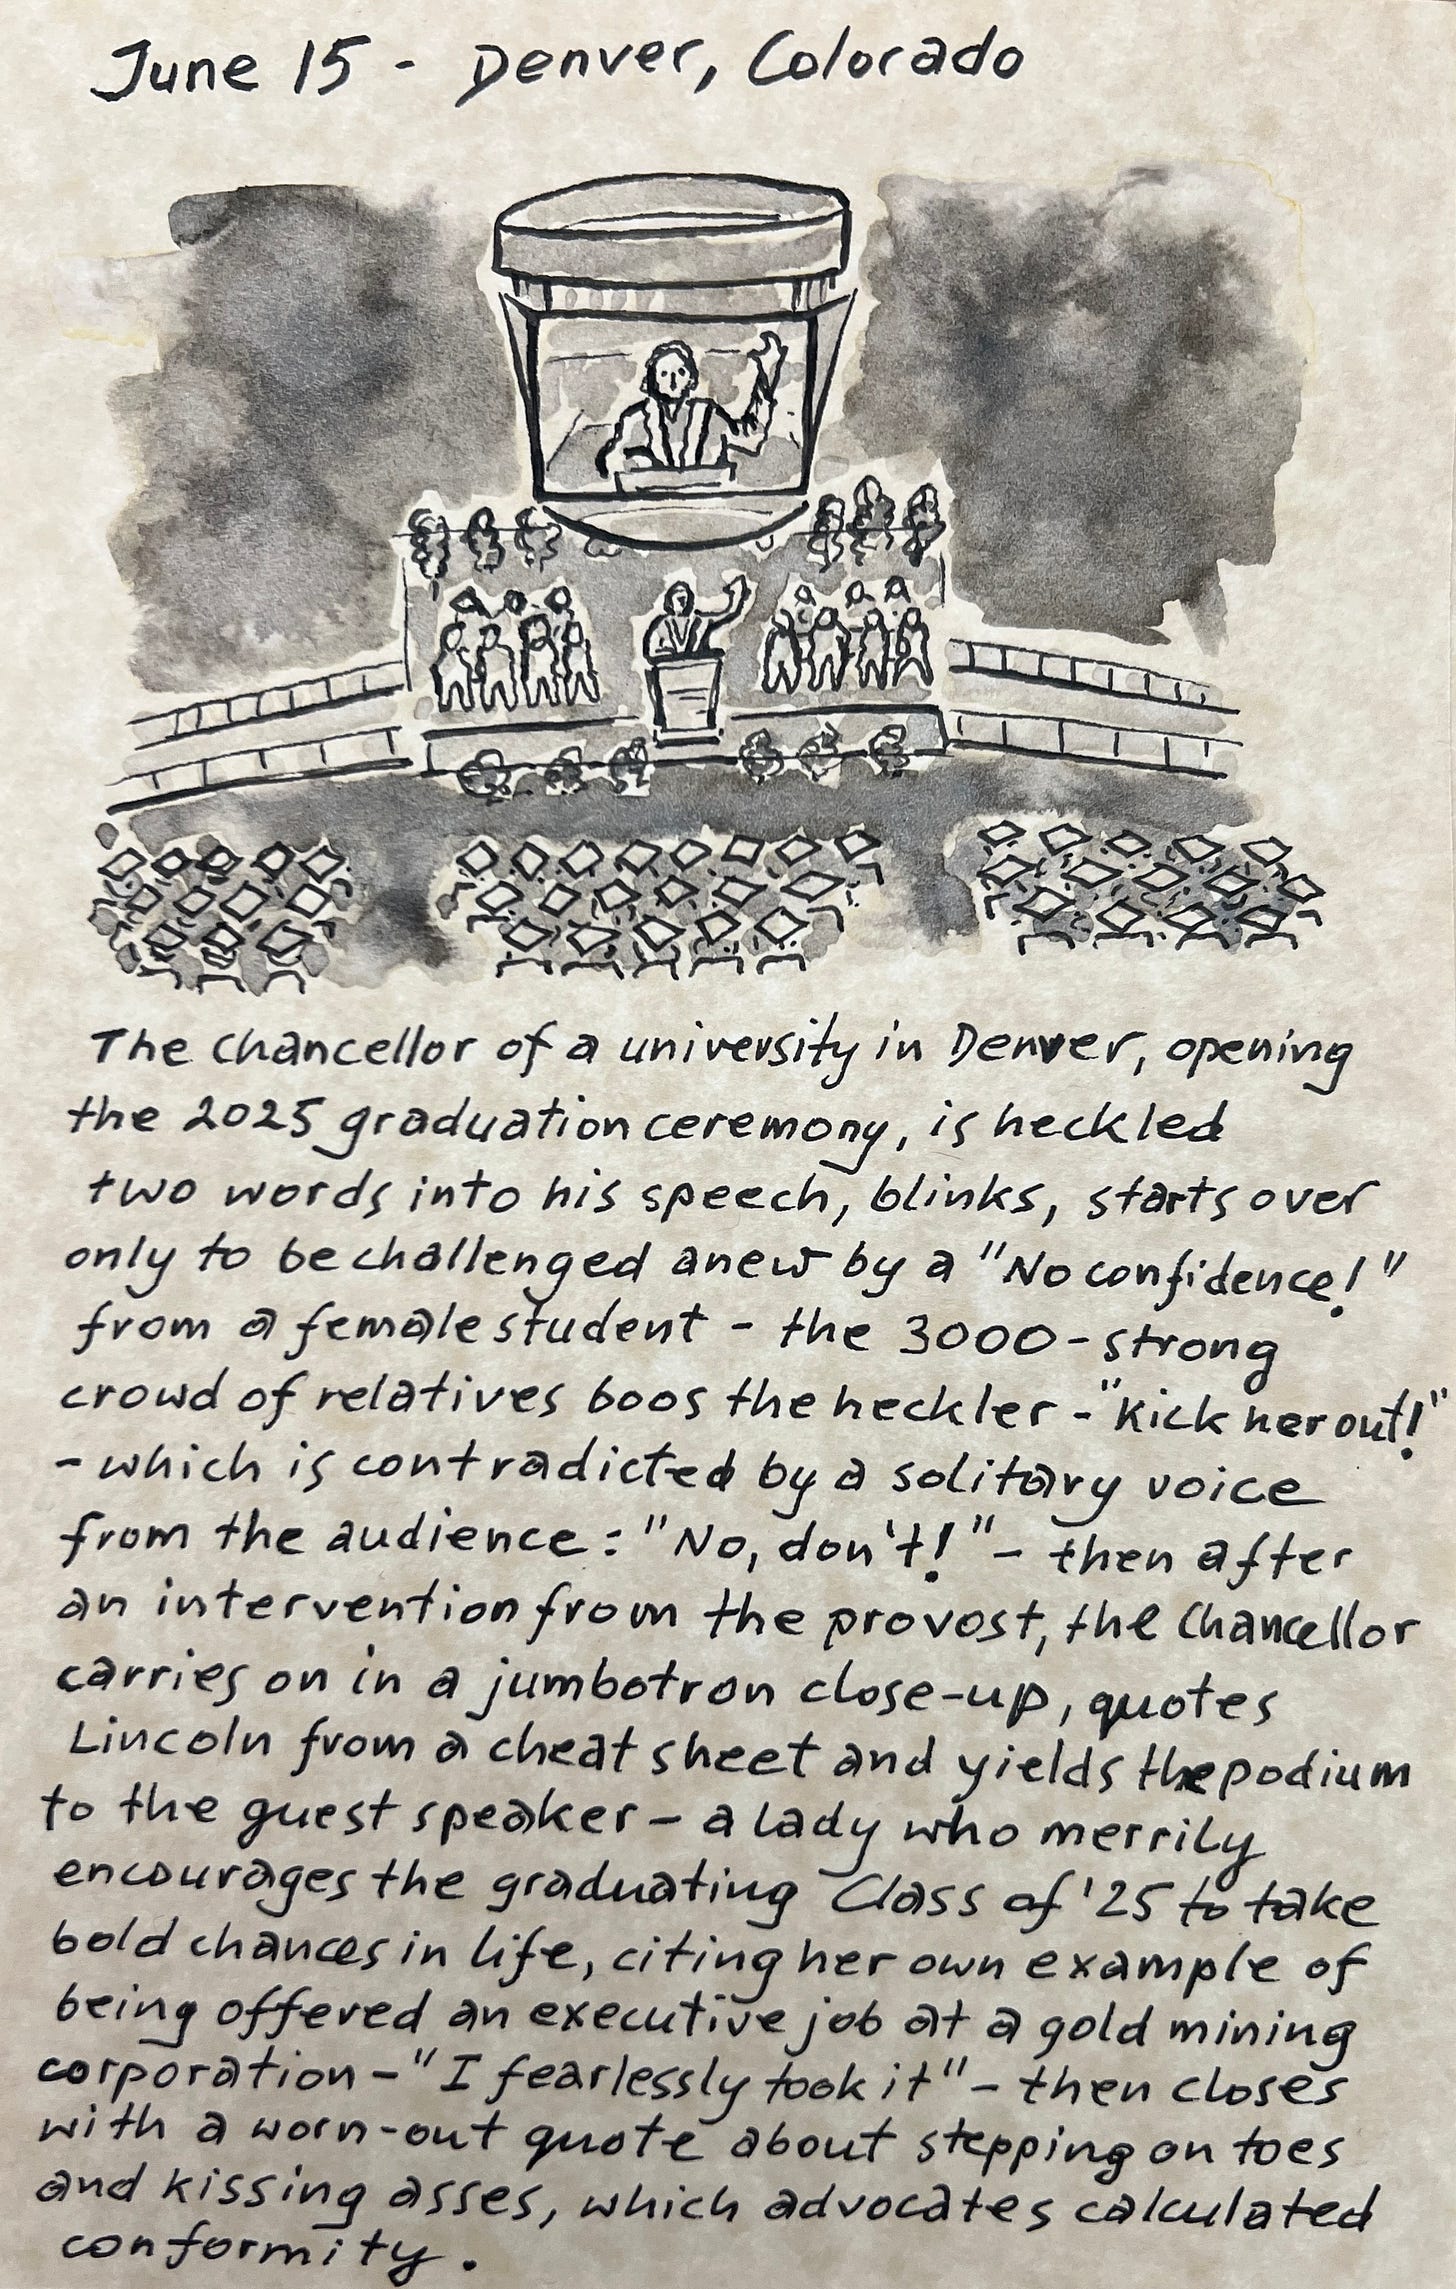 June 15 - Denver, Colorado
The chancellor of a university in Denver, opening
the 2025 graduation ceremony, is heckled
two words into his speech, blinks, starts over
only to be challenged anew by a "No confidence!"
from a female student - the 3000-strong
crowd of relatives boos the heckler - "Kick her out!"
- which is contradicted by a solitary voice
from the audience: "No, don't!" - then after
an intervention from the provost, the Chancellor
carries on in a jumbotron close-up, quotes
Lincoln from a cheat sheet and yields the podium
to the guest speaker - a lady who merrily
encourages the graduating Class of '25 to take
bold chances in life, citing her own example of
being offered an executive job at a gold mining
corporation - "I fearlessly took it" - then closes
with a worn-out quote about stepping on toes
and kissing asses, which advocates calculated
conformity.